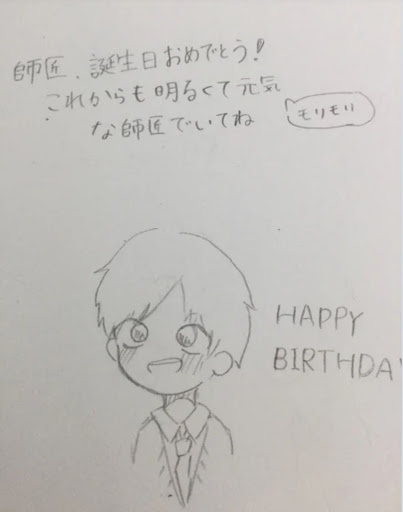 師匠、誕生日おめでとう!
これからも明るくて元気
な師匠でいてね
モリモリ
HAPPY
BIRTHDA